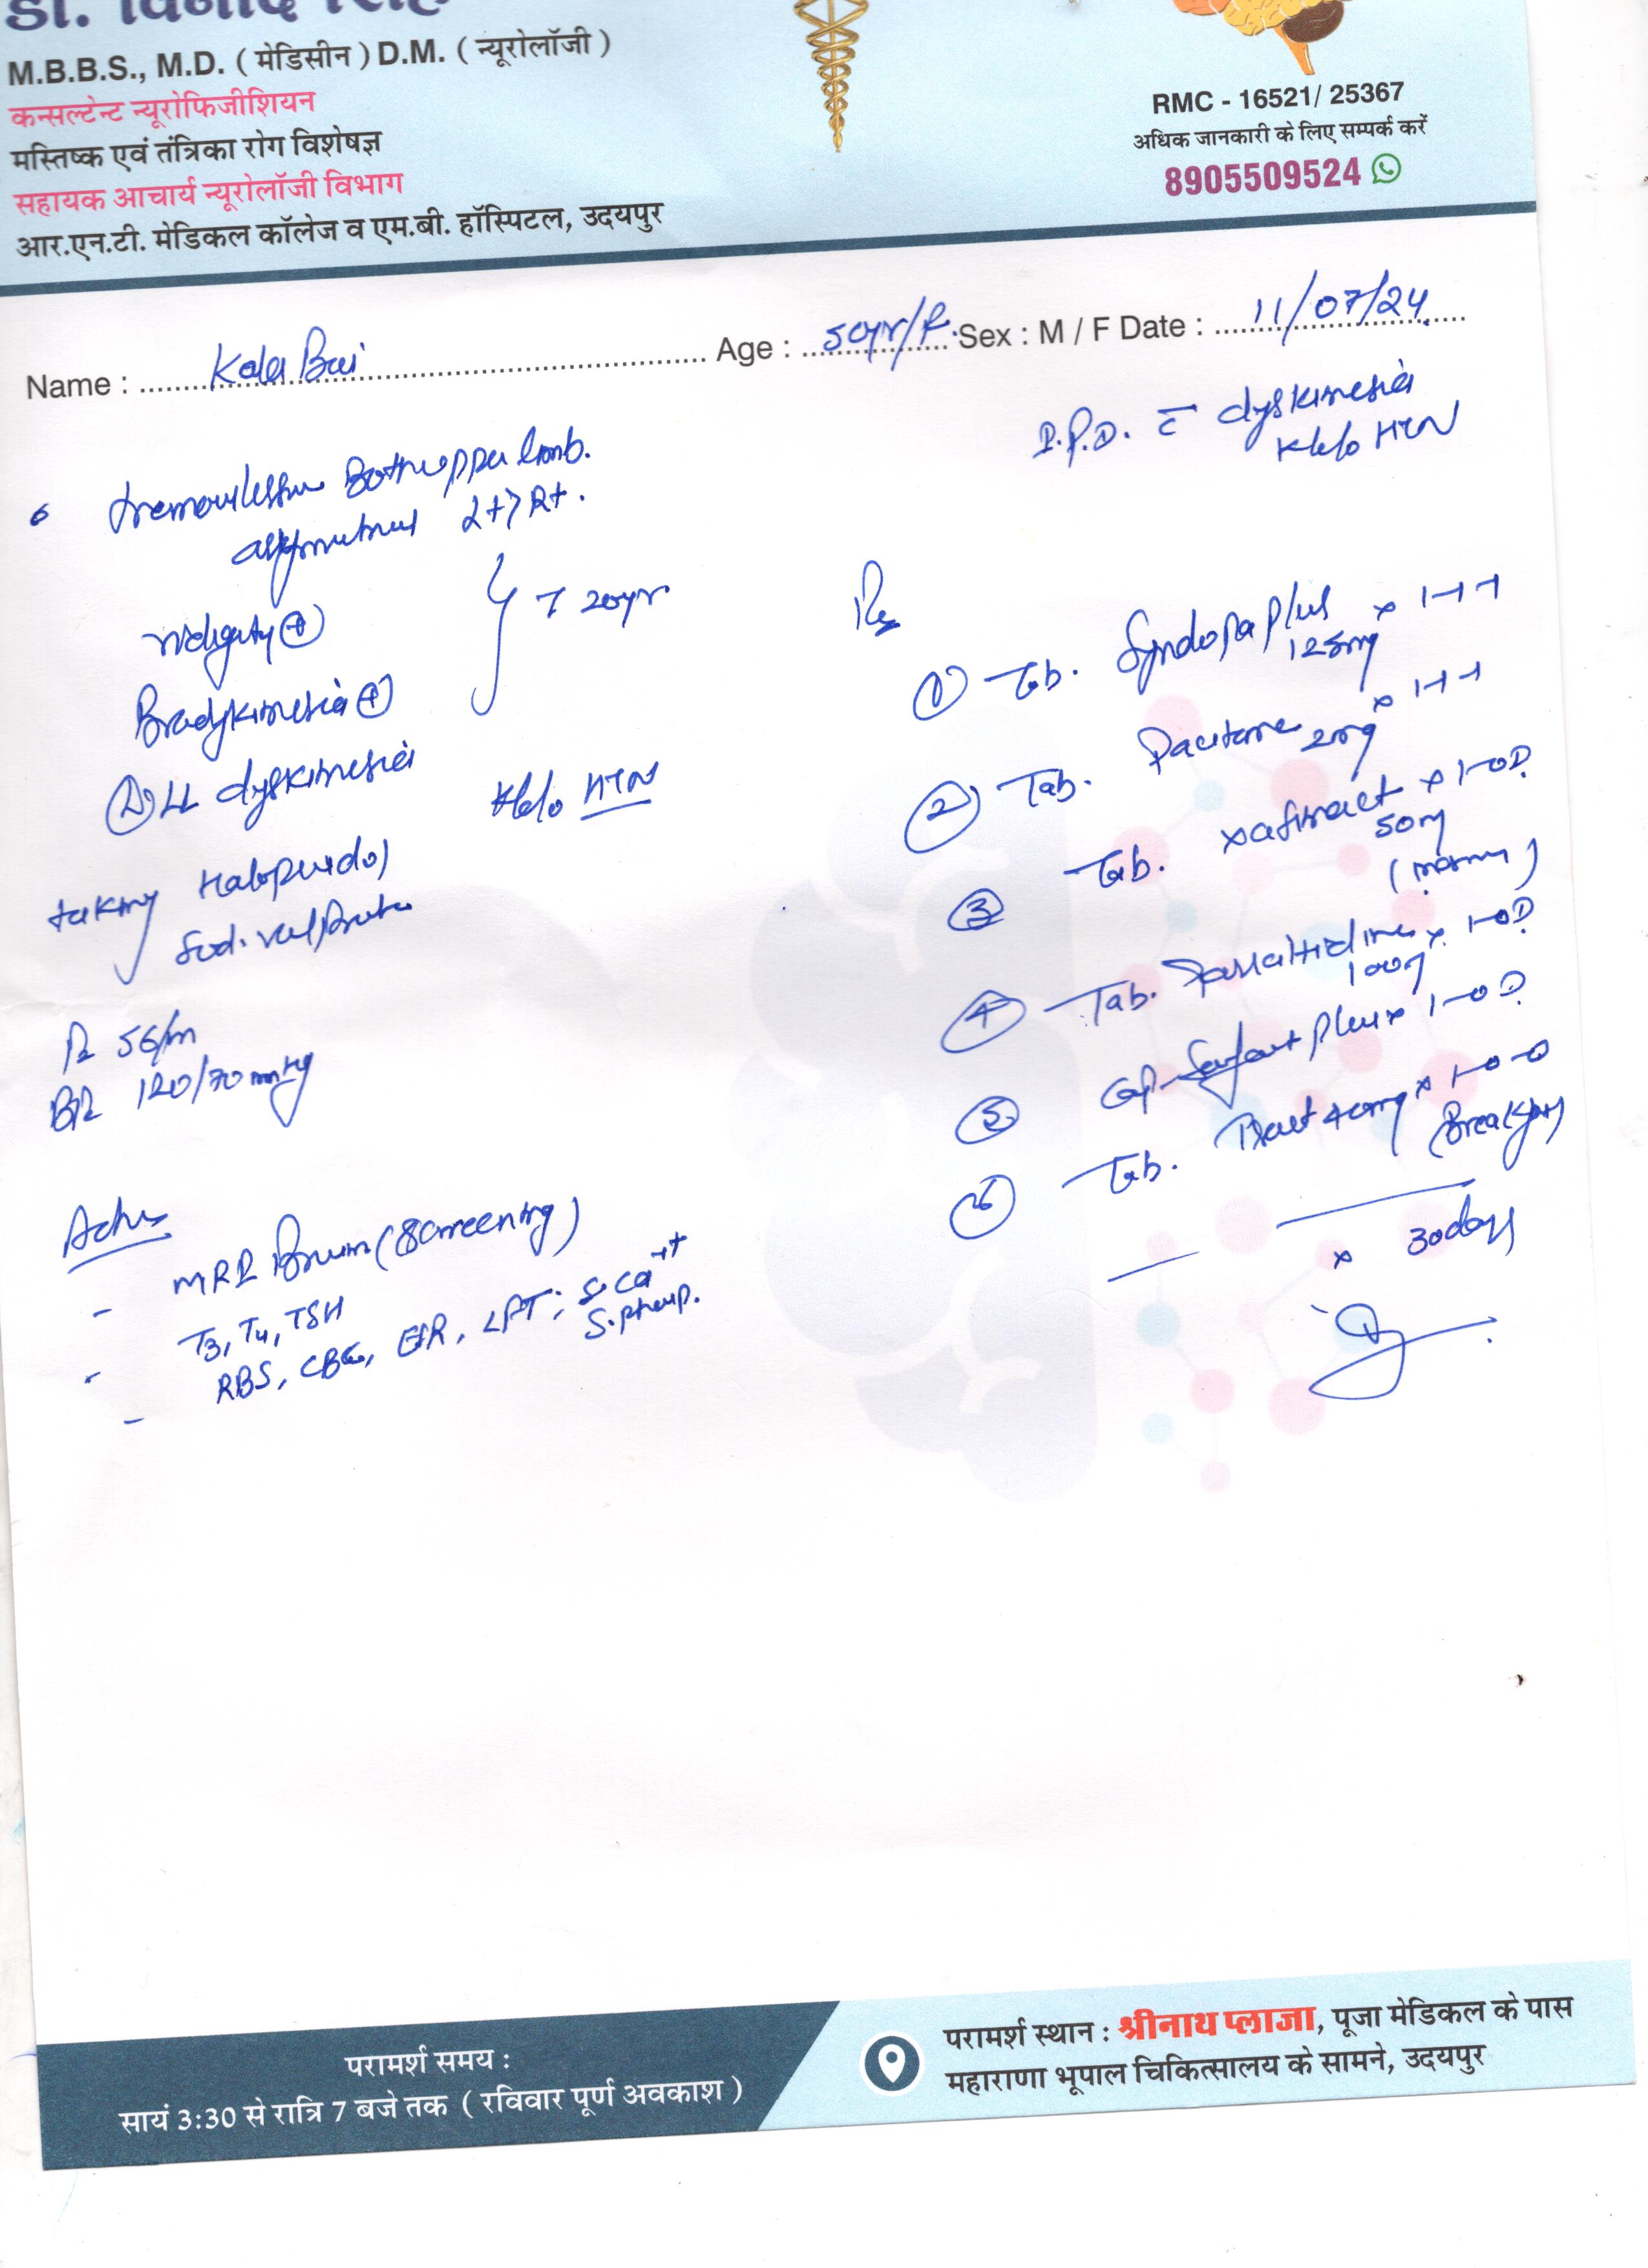 डॉ. विनोद सिंह
M.B.B.S., M.D. ( मेडिसीन ) D.M. ( न्यूरोलॉजी )
कन्सल्टेन्ट न्यूरोफिजीशियन
मस्तिष्क एवं तंत्रिका रोग विशेषज्ञ
सहायक आचार्य न्यूरोलॉजी विभाग
आर.एन.टी. मेडिकल कॉलेज व एम.बी. हॉस्पिटल, उदयपुर
RMC - 16521/ 25367
अधिक जानकारी के लिए सम्पर्क करें
8905509524
Name : Kala Bai Age : 50yr/F Sex : M / F Date : 11/07/24
Both upper limb.
L+>R+.
Bradykinesia (+)
20yr
LL dyskinesia
K/c/o HTN
taking Haloperidol
Sod. Valproate
56/m
120/70 mmHg
Adv
- MRI Brain (Screening)
- T3, T4, TSH
- RBS, CBC, LFT, S. Ca++
S. Phosp.
I.P.D. c dyskinesia
K/c/o HTN
Rx
① Tab. Syndopa Plus x 1-1-1
125mg
② Tab. Pacitane x 1-1-1
2mg
③ Tab. x 1-OD
50mg
(morning)
④ Tab. x 1-OD
100mg
⑤ Cap Plus x 1-OD
⑥ Tab. 40mg x 1-0-0
(Breakfast)
x 30days
परामर्श समय :
सायं 3:30 से रात्रि 7 बजे तक ( रविवार पूर्ण अवकाश )
परामर्श स्थान : श्रीनाथ प्लाजा, पूजा मेडिकल के पास
महाराणा भूपाल चिकित्सालय के सामने, उदयपुर